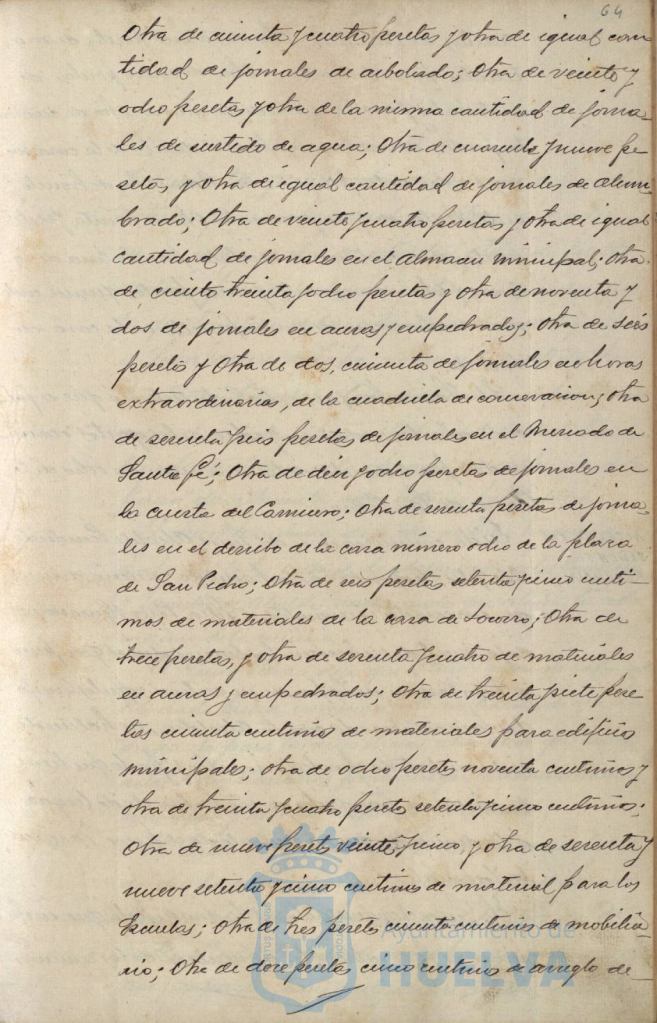 64
Otra de cincuenta y cuatro pesetas y otra de igual can-
tidad de jornales de arbolado; Otra de veinte y
ocho pesetas y otra de la misma cantidad de jorna-
les de surtido de agua; Otra de cuarenta y nueve pe
setas, y otra de igual cantidad de jornales de alum-
brado; Otra de veinte y cuatro pesetas y otra de igual
cantidad de jornales en el almacen municipal; Otra
de ciento treinta y ocho pesetas y otra de noventa y
dos de jornales en aceras y empedrados; otra de seis
pesetas y Otra de dos, cincuenta de jornales en horas
extraordinarias, de la cuadrilla de conservacion; otra
de sesenta y seis pesetas de jornales en el Mercado de
Santa Fé; Otra de diez y ocho pesetas de jornales en
la cuesta del Carnicero; Otra de sesenta pesetas de jorna-
les en el derribo de la casa número ocho de la plaza
de San Pedro; Otra de seis pesetas setenta y cinco centi-
mos de materiales de la casa de Socorro; Otra de
trece pesetas, y otra de sesenta y cuatro de materiales
en aceras y empedrados; Otra de treinta y siete pese
tas cincuenta centimos de materiales para edificios
municipales; otra de ocho pesetas noventa centimos y
otra de treinta y cuatro pesetas setenta y cinco centimos;
Otra de nueve pesetas veinte y cinco, y otra de sesenta y
nueve setenta y cinco centimos de material para las
Escuelas; Otra de tres pesetas cincuenta centimos de mobilia-
rio; Otra de doce pesetas cinco centimos de arreglo de
Ayuntamiento de
HUELVA